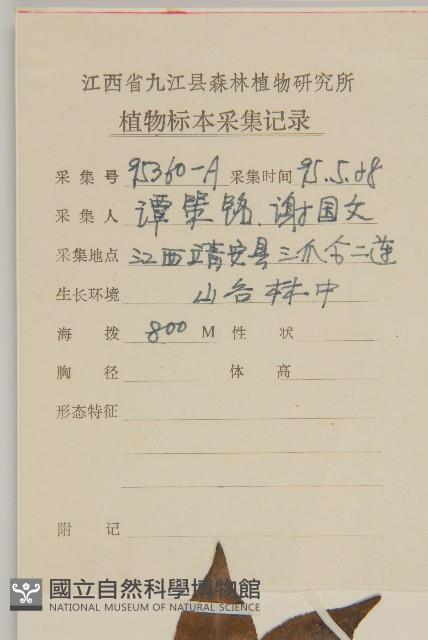 江西省九江县森林植物研究所
植物标本采集记录
采集号 95360-A 采集时间 95.5.28
采集人 谭策铭、谢国文
采集地点 江西靖安县三爪仑二莲
生长环境 山谷林中
海拨 800 M 性状
胸径 体高
形态特征
附记
國立自然科學博物館
NATIONAL MUSEUM OF NATURAL SCIENCE